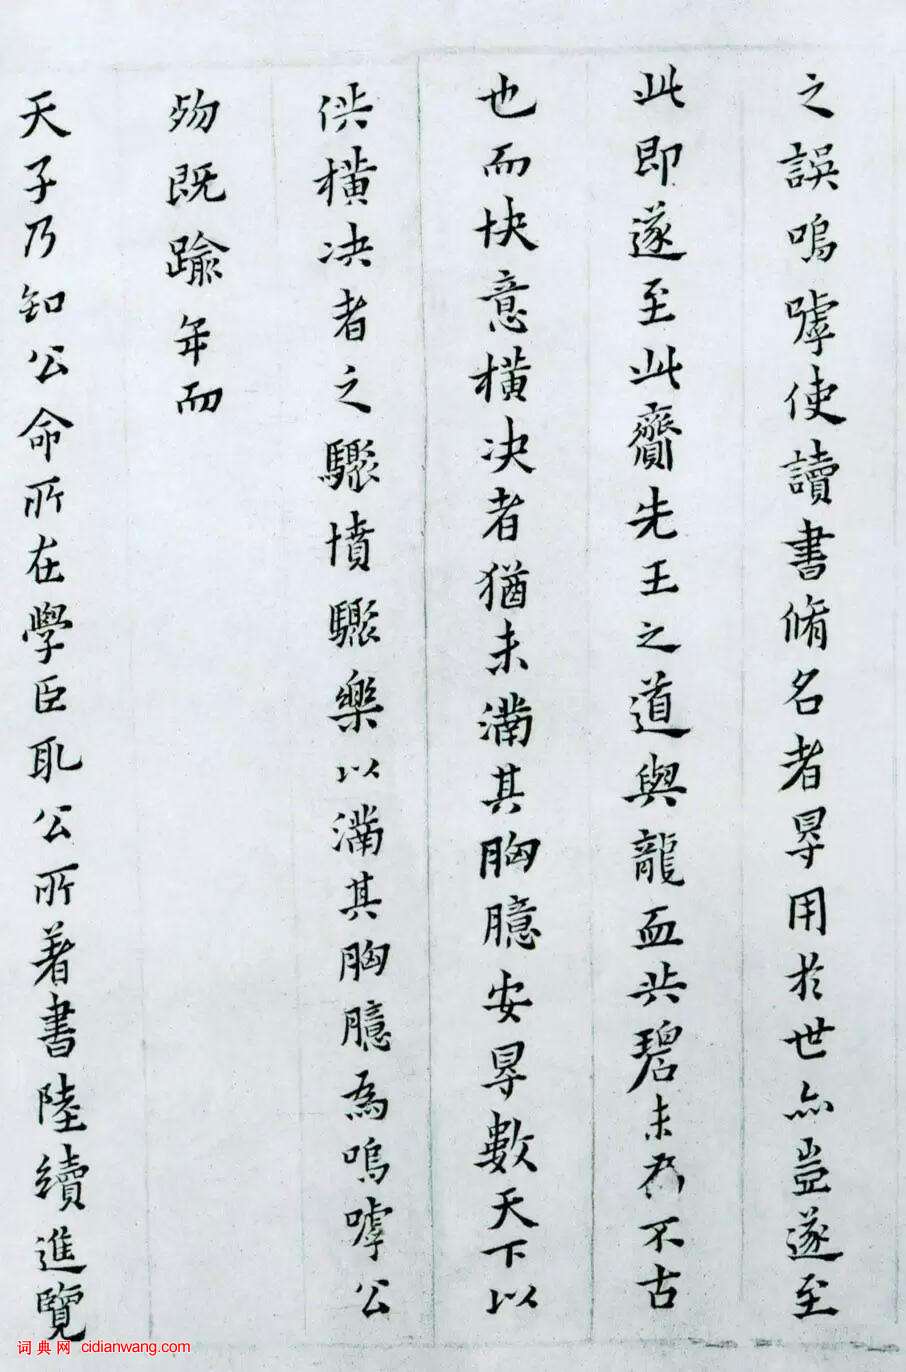 之誤嗚嘑使讀書脩名者㝵用於世亦豈遂至
此即遂至此齎先王之道與龍血共碧未為不古
也而快意橫決者猶未滿其胸臆安㝵數天下以
供橫決者之驟憤驟樂以滿其胸臆為嗚嘑公
歾既踰年而
天子乃知公命所在學臣取公所著書陸續進覽
词典网 cidianwang.com